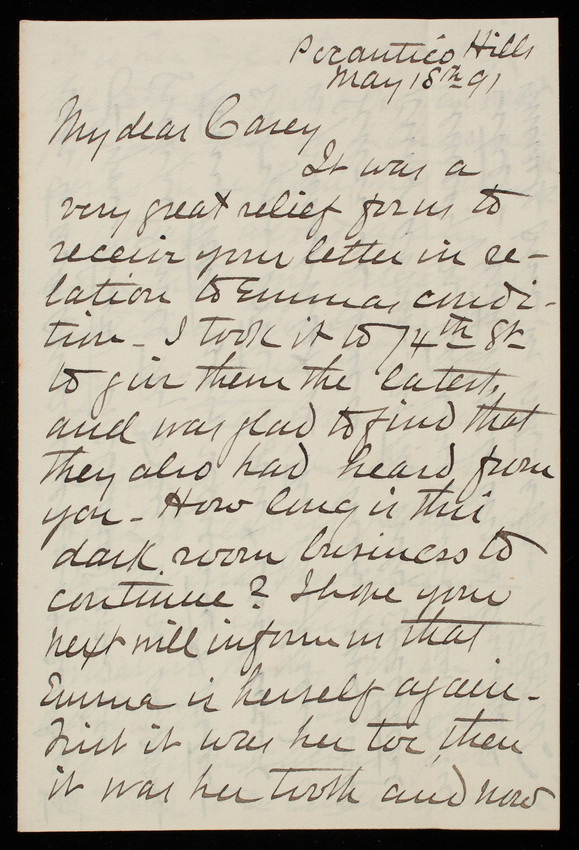 Pocantico Hills
May 18th 91
My dear Casey
It was a
very great relief for us to
receive your letter in re-
lation to Emmas condi-
tion - I took it to 74th St
to give them the latest,
and was glad to find that
they also had heard from
you - How long is this
dark room business to
continue? I hope your
next will inform us that
Emma is herself again -
First it was her toe, then
it was her tooth and now